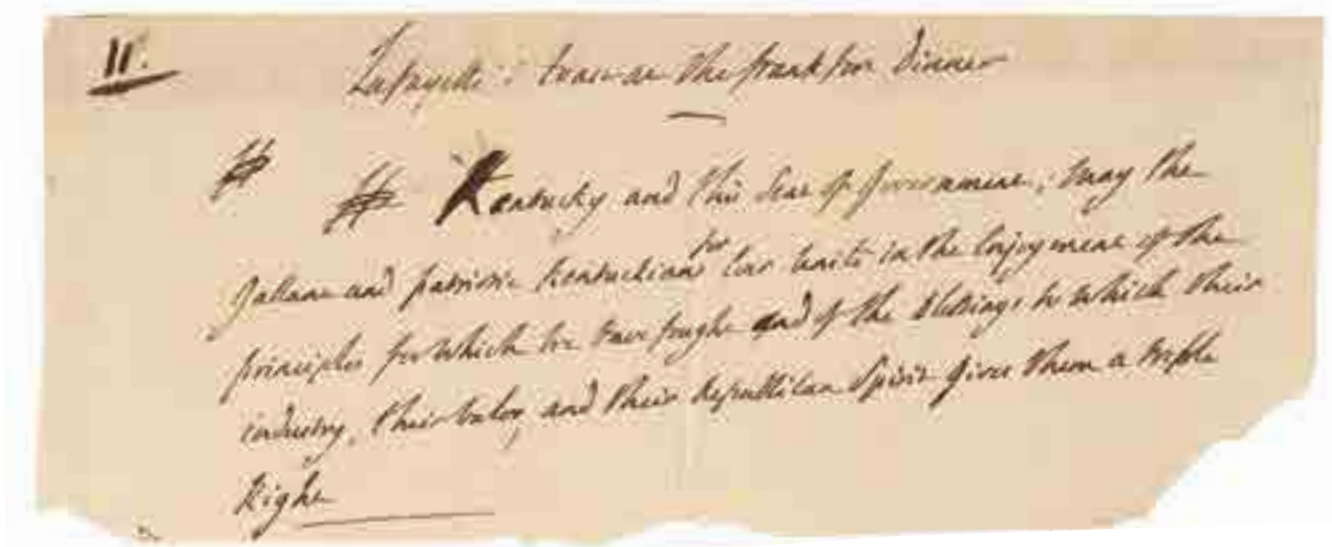 11.
Lafayette's toast at the frankfort Dinner
# # Kentucky and this Seat of Government; may the
gallant and patriotic Kentuckians for Ever unite in the Enjoyment of the
principles for which we have fought and of the blessings to which their
industry, their valor, and their republican Spirit gives them a triple
Right